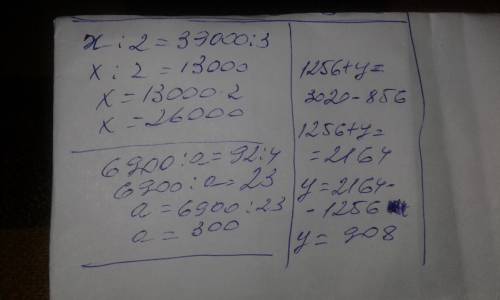 x : 2 = 39000 : 3
x : 2 = 13000
x = 13000 · 2
x = 26000
6900 : a = 92 : 4
6900 : a = 23
a = 6900 : 23
a = 300
1256 + y =
3020 - 856
1256 + y =
= 2164
y = 2164 -
- 1256
y = 908